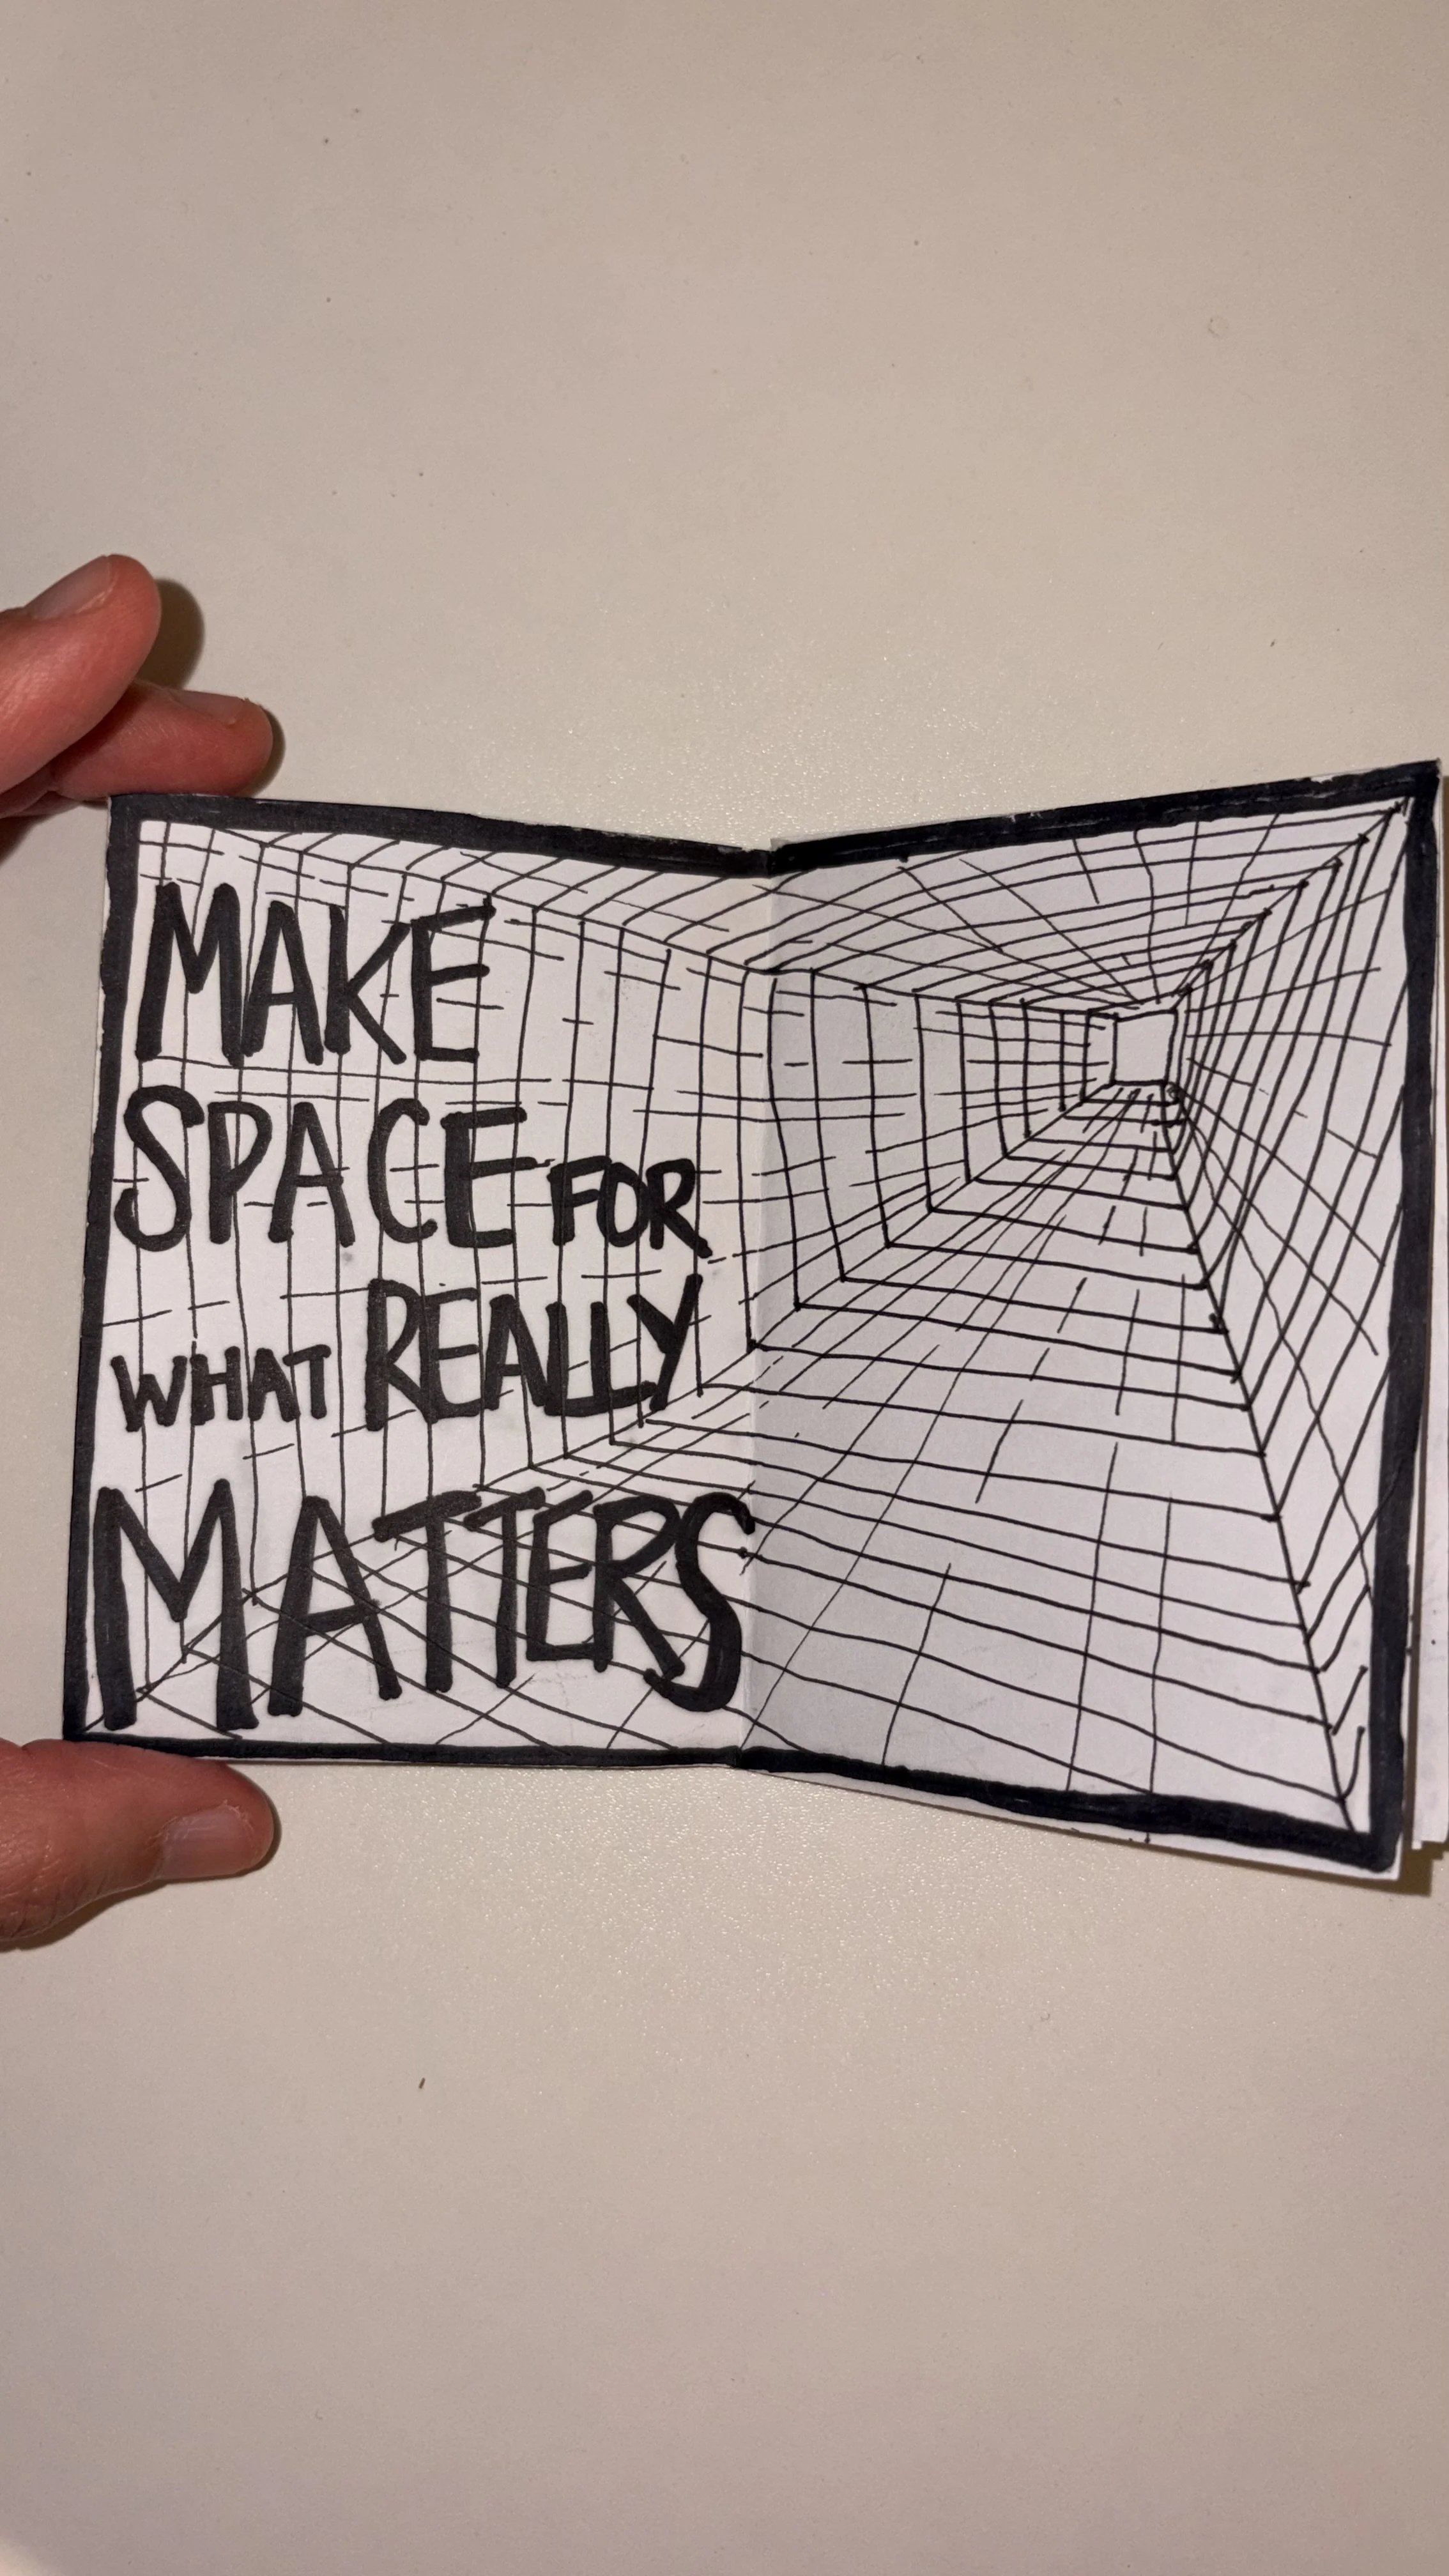 MAKE
SPACE FOR
WHAT REALLY
MATTERS